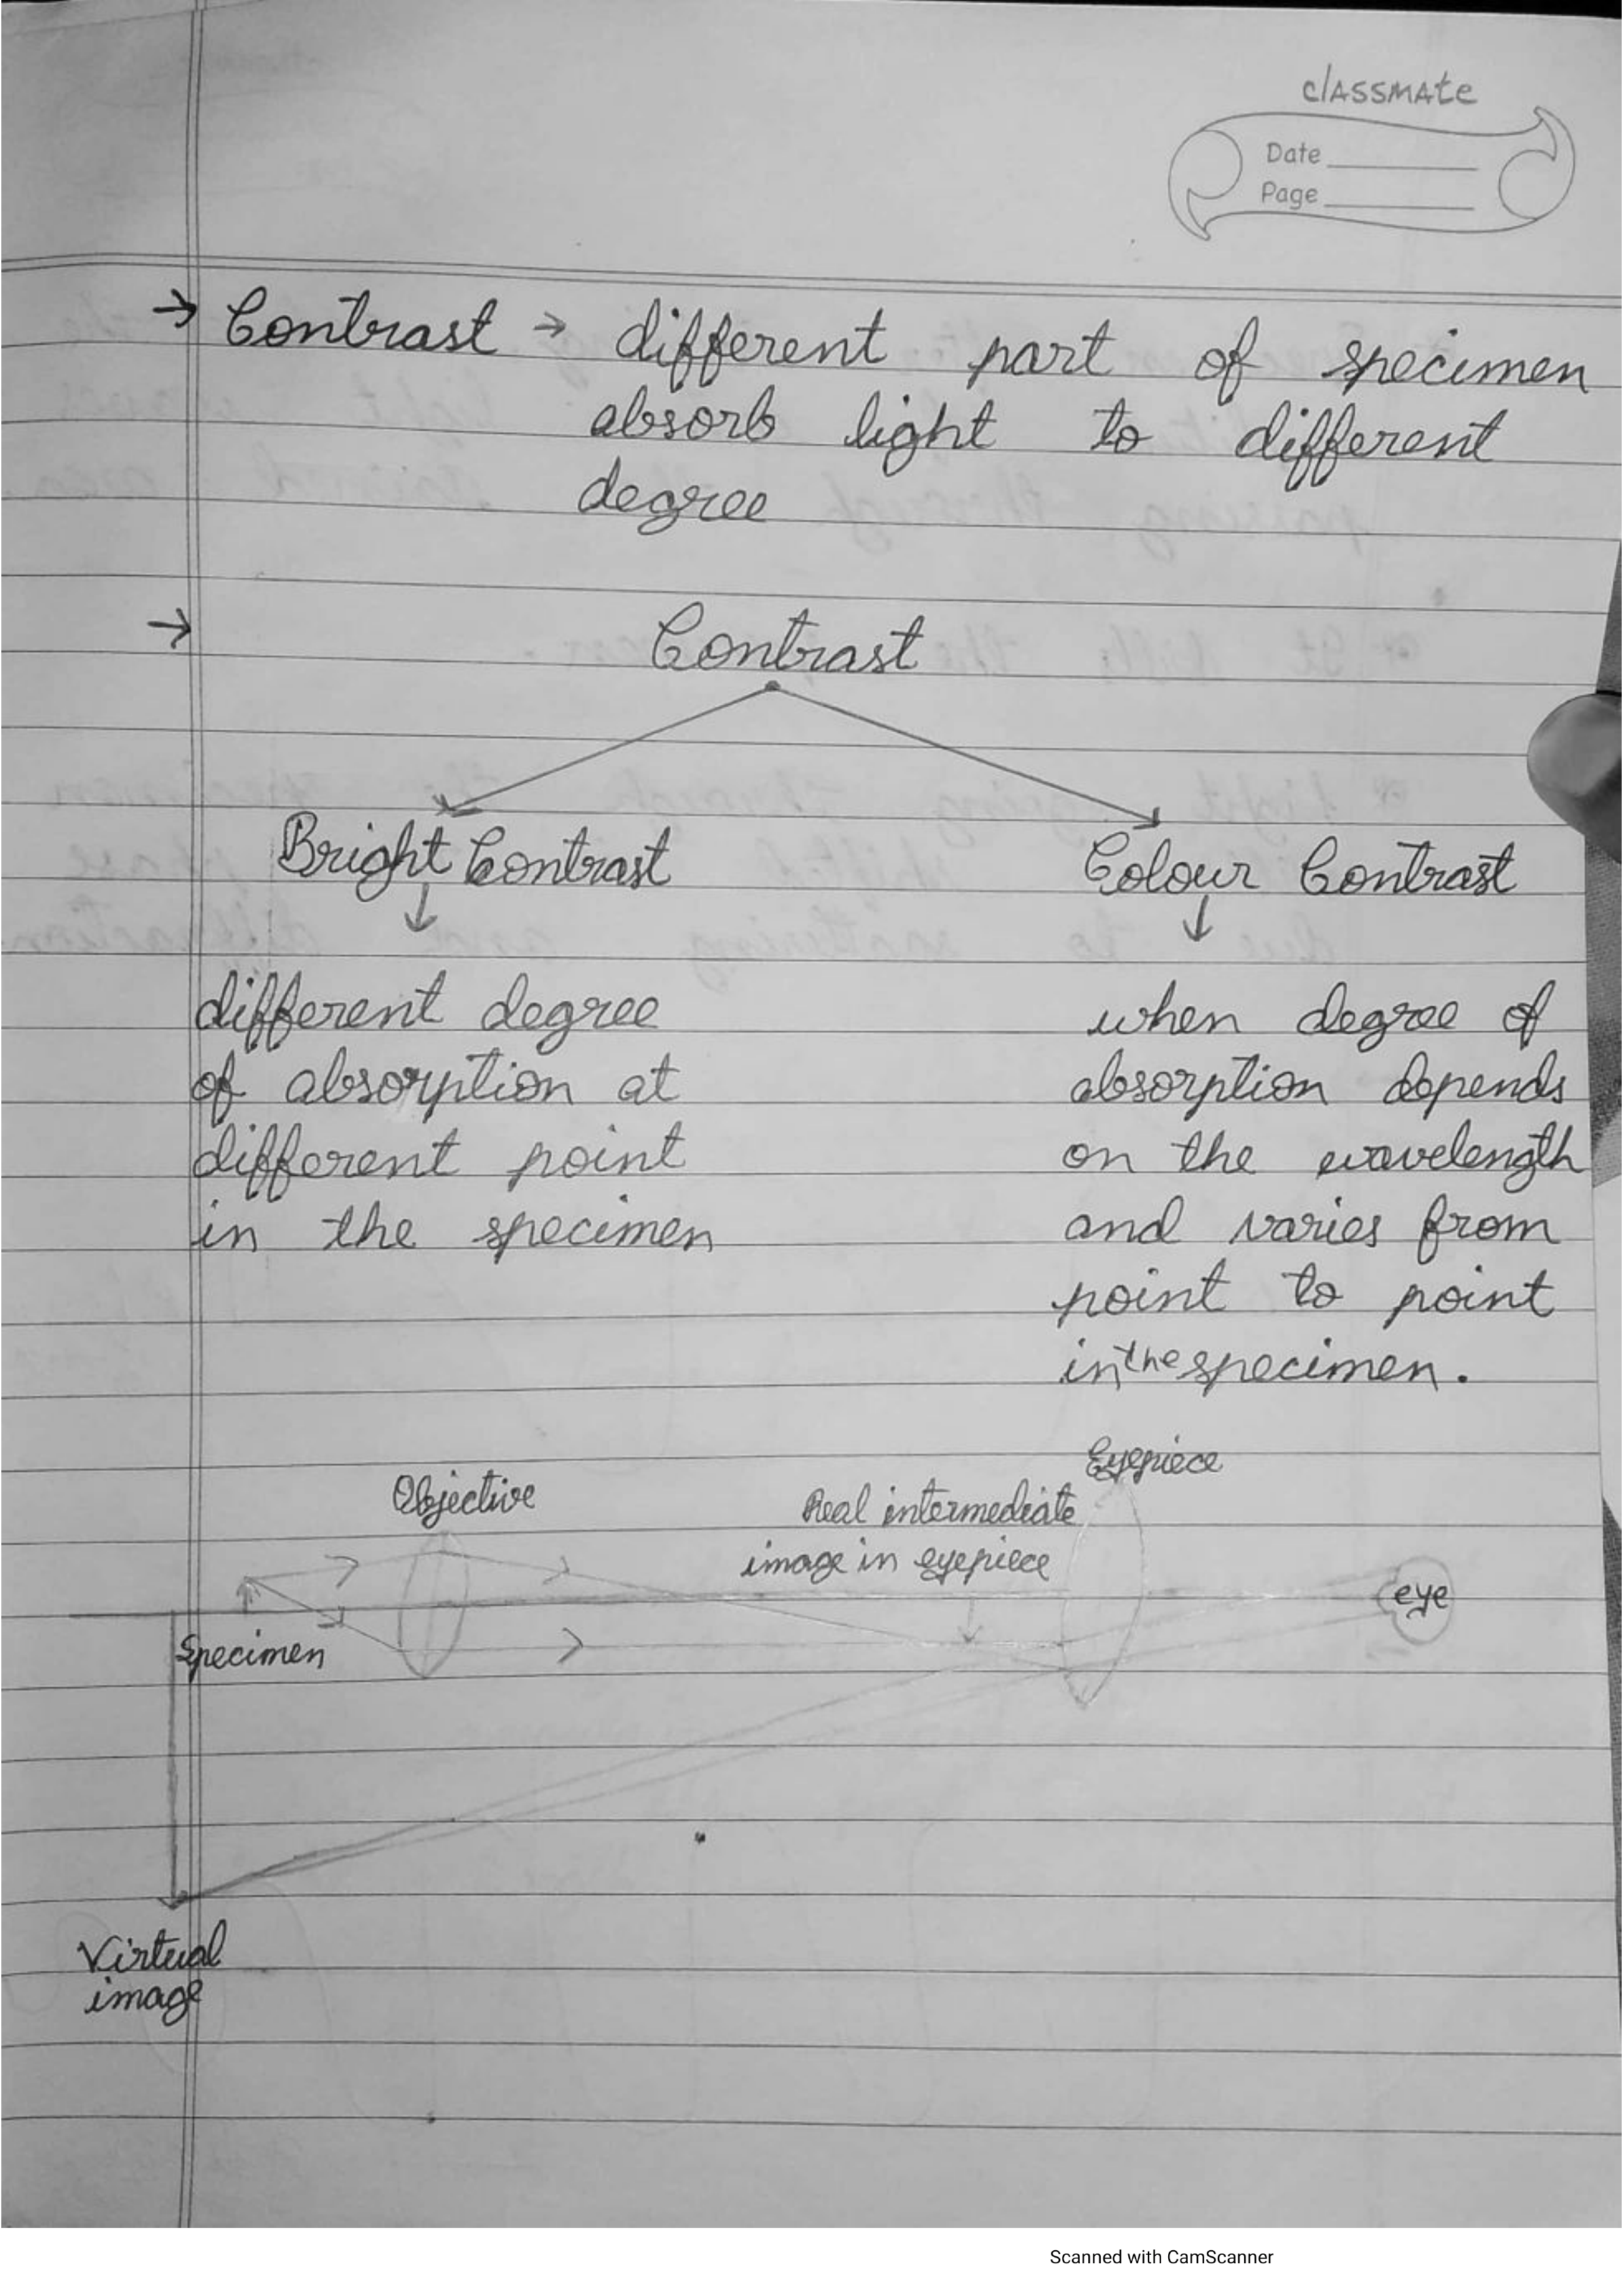 classmate
Date
Page
→ Contrast → different part of specimen
absorb light to different
degree
→ Contrast
Bright Contrast
↓
different degree
of absorption at
different point
in the specimen
Colour Contrast
↓
when degree of
absorption depends
on the wavelength
and varies from
point to point
in the specimen.
Objective
Real intermediate
image in eyepiece
Eyepiece
eye
Specimen
Virtual
image
Scanned with CamScanner